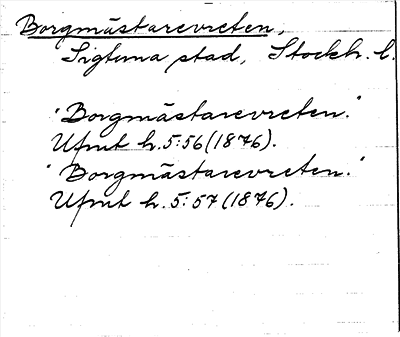 Borgmästarevreten,
Sigtuna stad, Stockh. l.
"Borgmästarevreten."
Ufmt h. 5:56 (1876).
"Borgmästarevreten."
Ufmt h. 5:57 (1876).